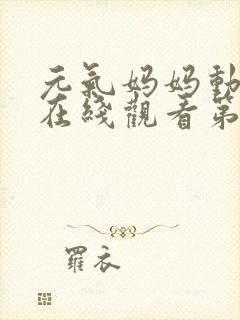 元氣妈妈動
在綫觀看第
羅衣